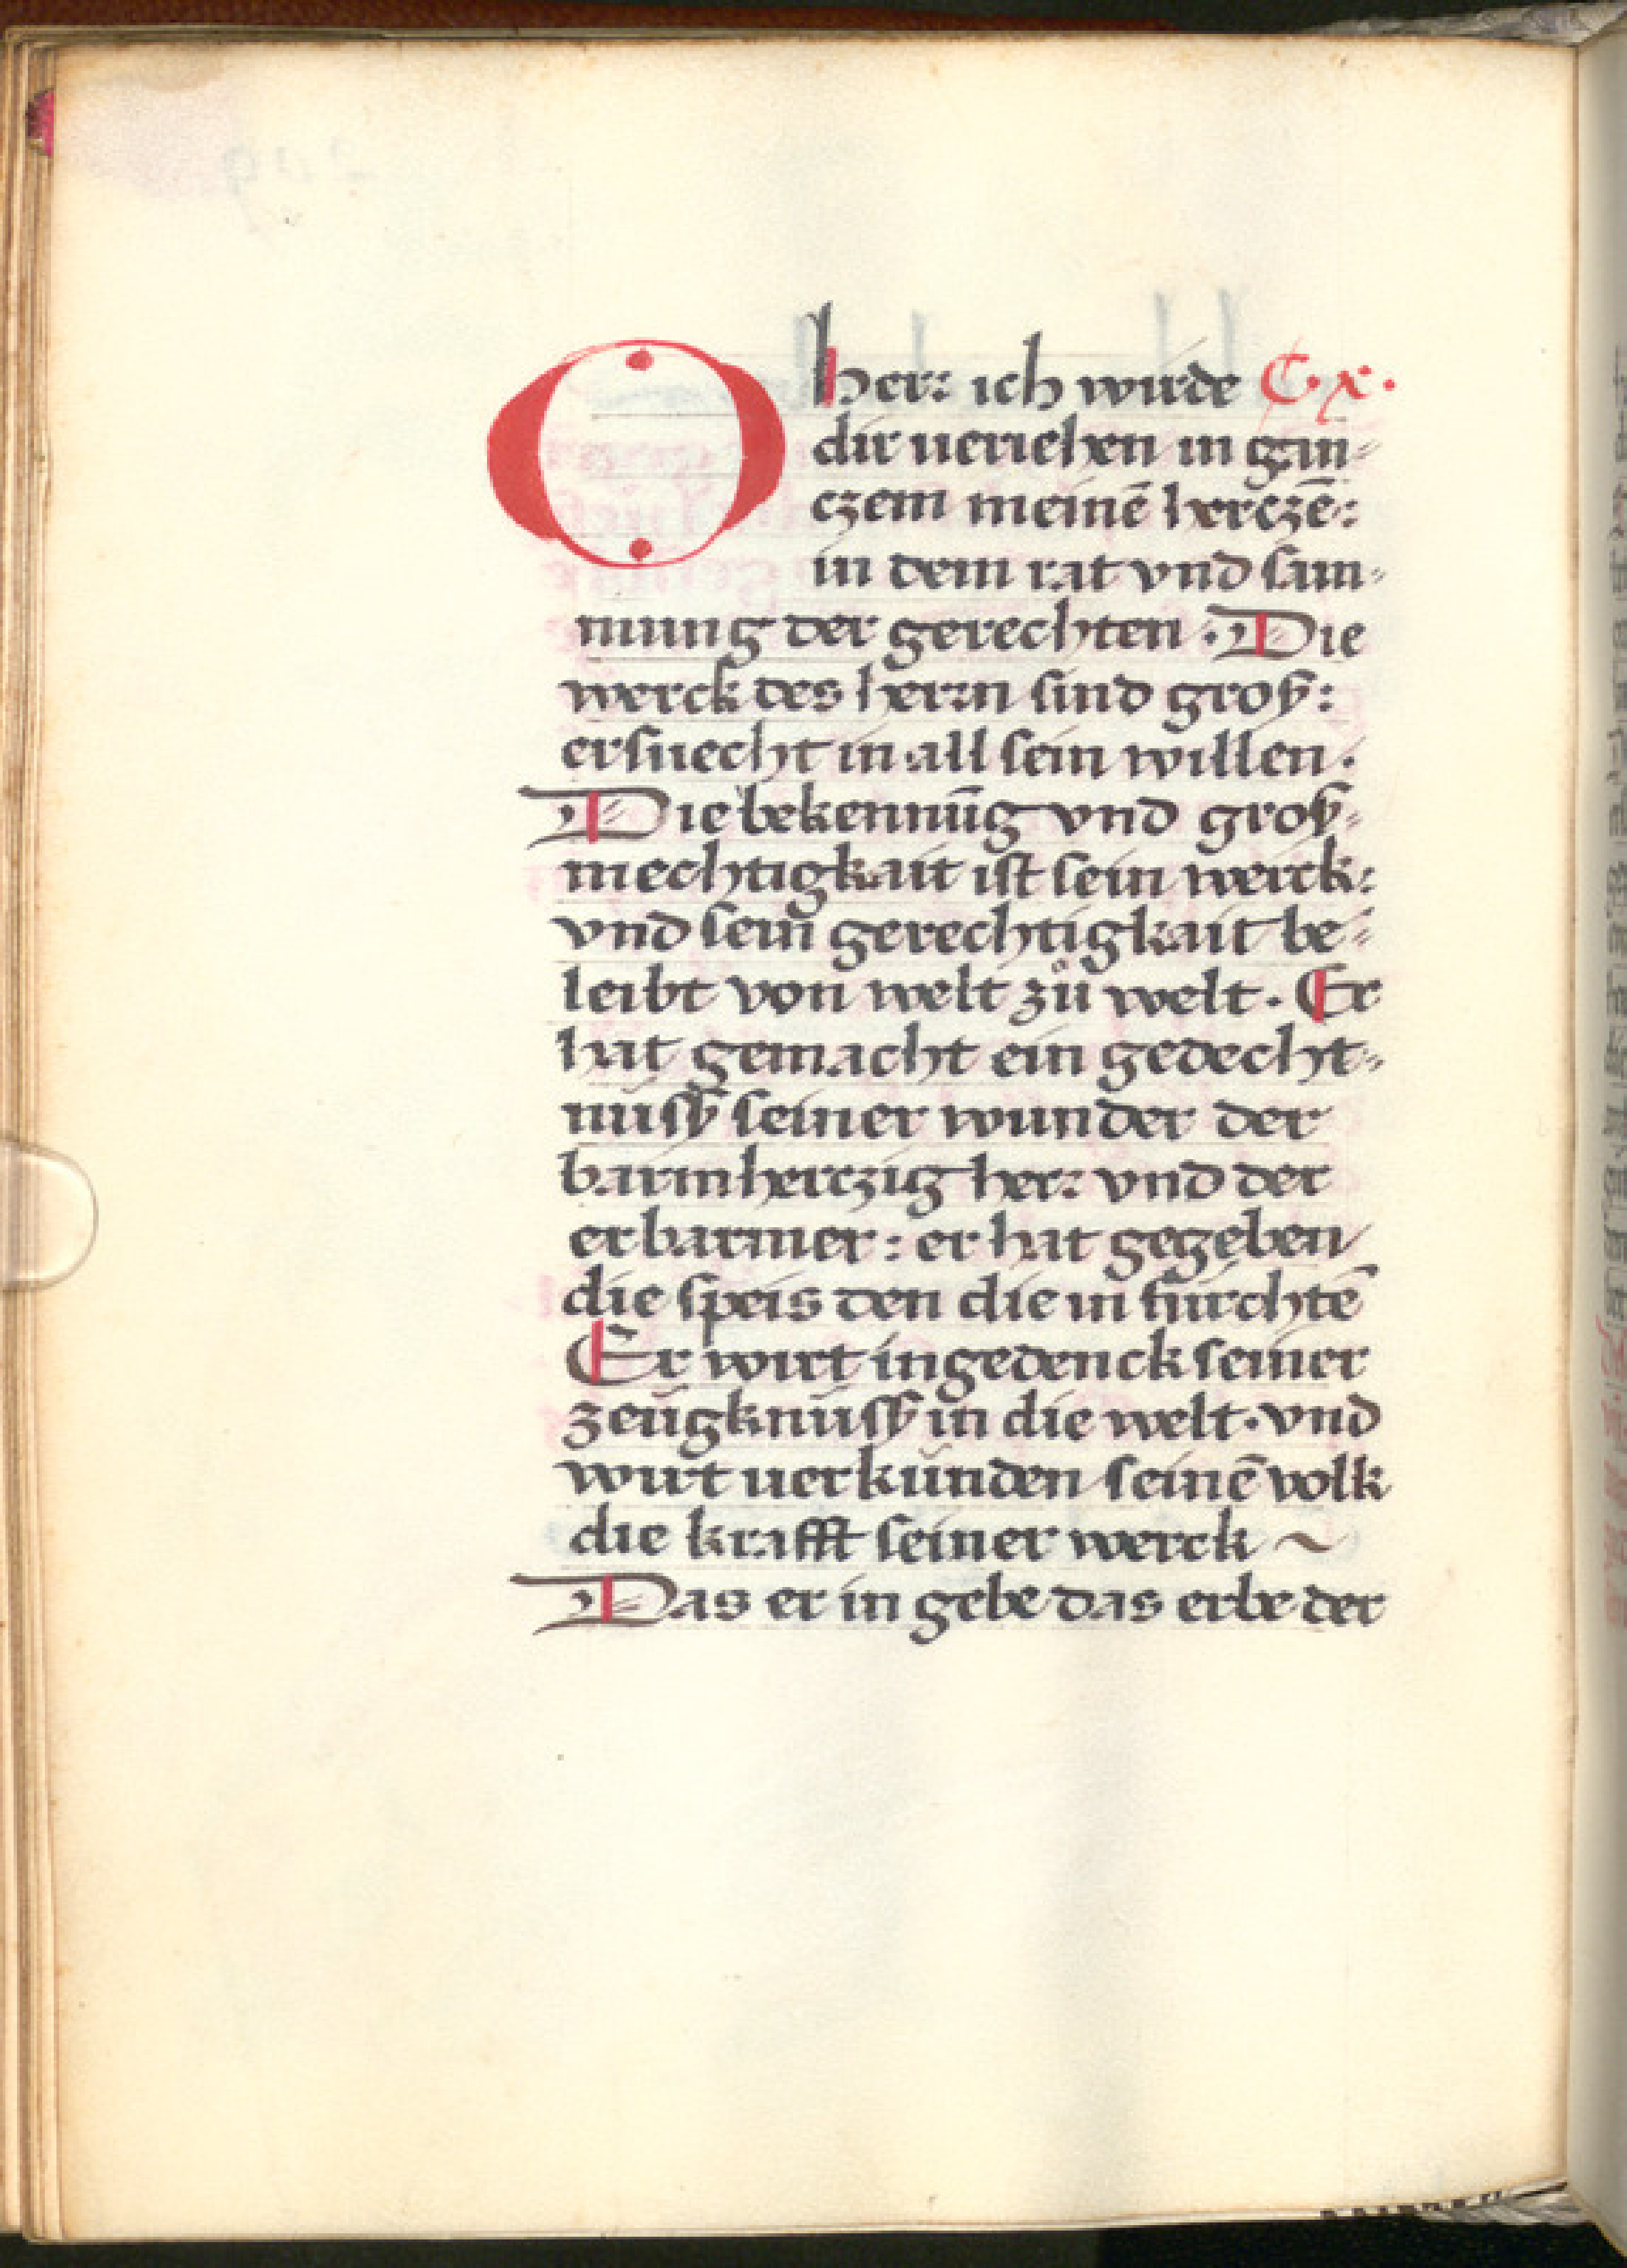 O herr ich wirde C·x·
dir veriehen in gan-
czem meinē herczē:
in dem rat vnd sam-
nung der gerechten · Die
werck des herrn sind groß:
ersuecht in all sein willen.
Die bekennūg vnd groß-
mechtigkait ist sein werck:
vnd sein gerechtigkait be-
leibt von welt zů welt. Er
hat gemacht ein gedecht-
nüsß seiner wunder der
barmherczig herr vnd der
erbarmer: er hat gegeben
die speis den die in fürchtē
Er wirt ingedenck seiner
zeügknüsß in die welt · vnd
wirt verkünden seinē volk
die krafft seiner werck ~
Das er in gebe das erbe der